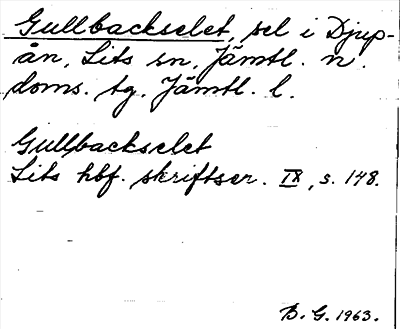 Gullbackselet, sel i Djup-
ån, Lits sn, Jämtl. n.
doms. tg. Jämtl. l.
Gullbackselet
Lits hbf. skriftser. IX, s. 148.
B. G. 1963.